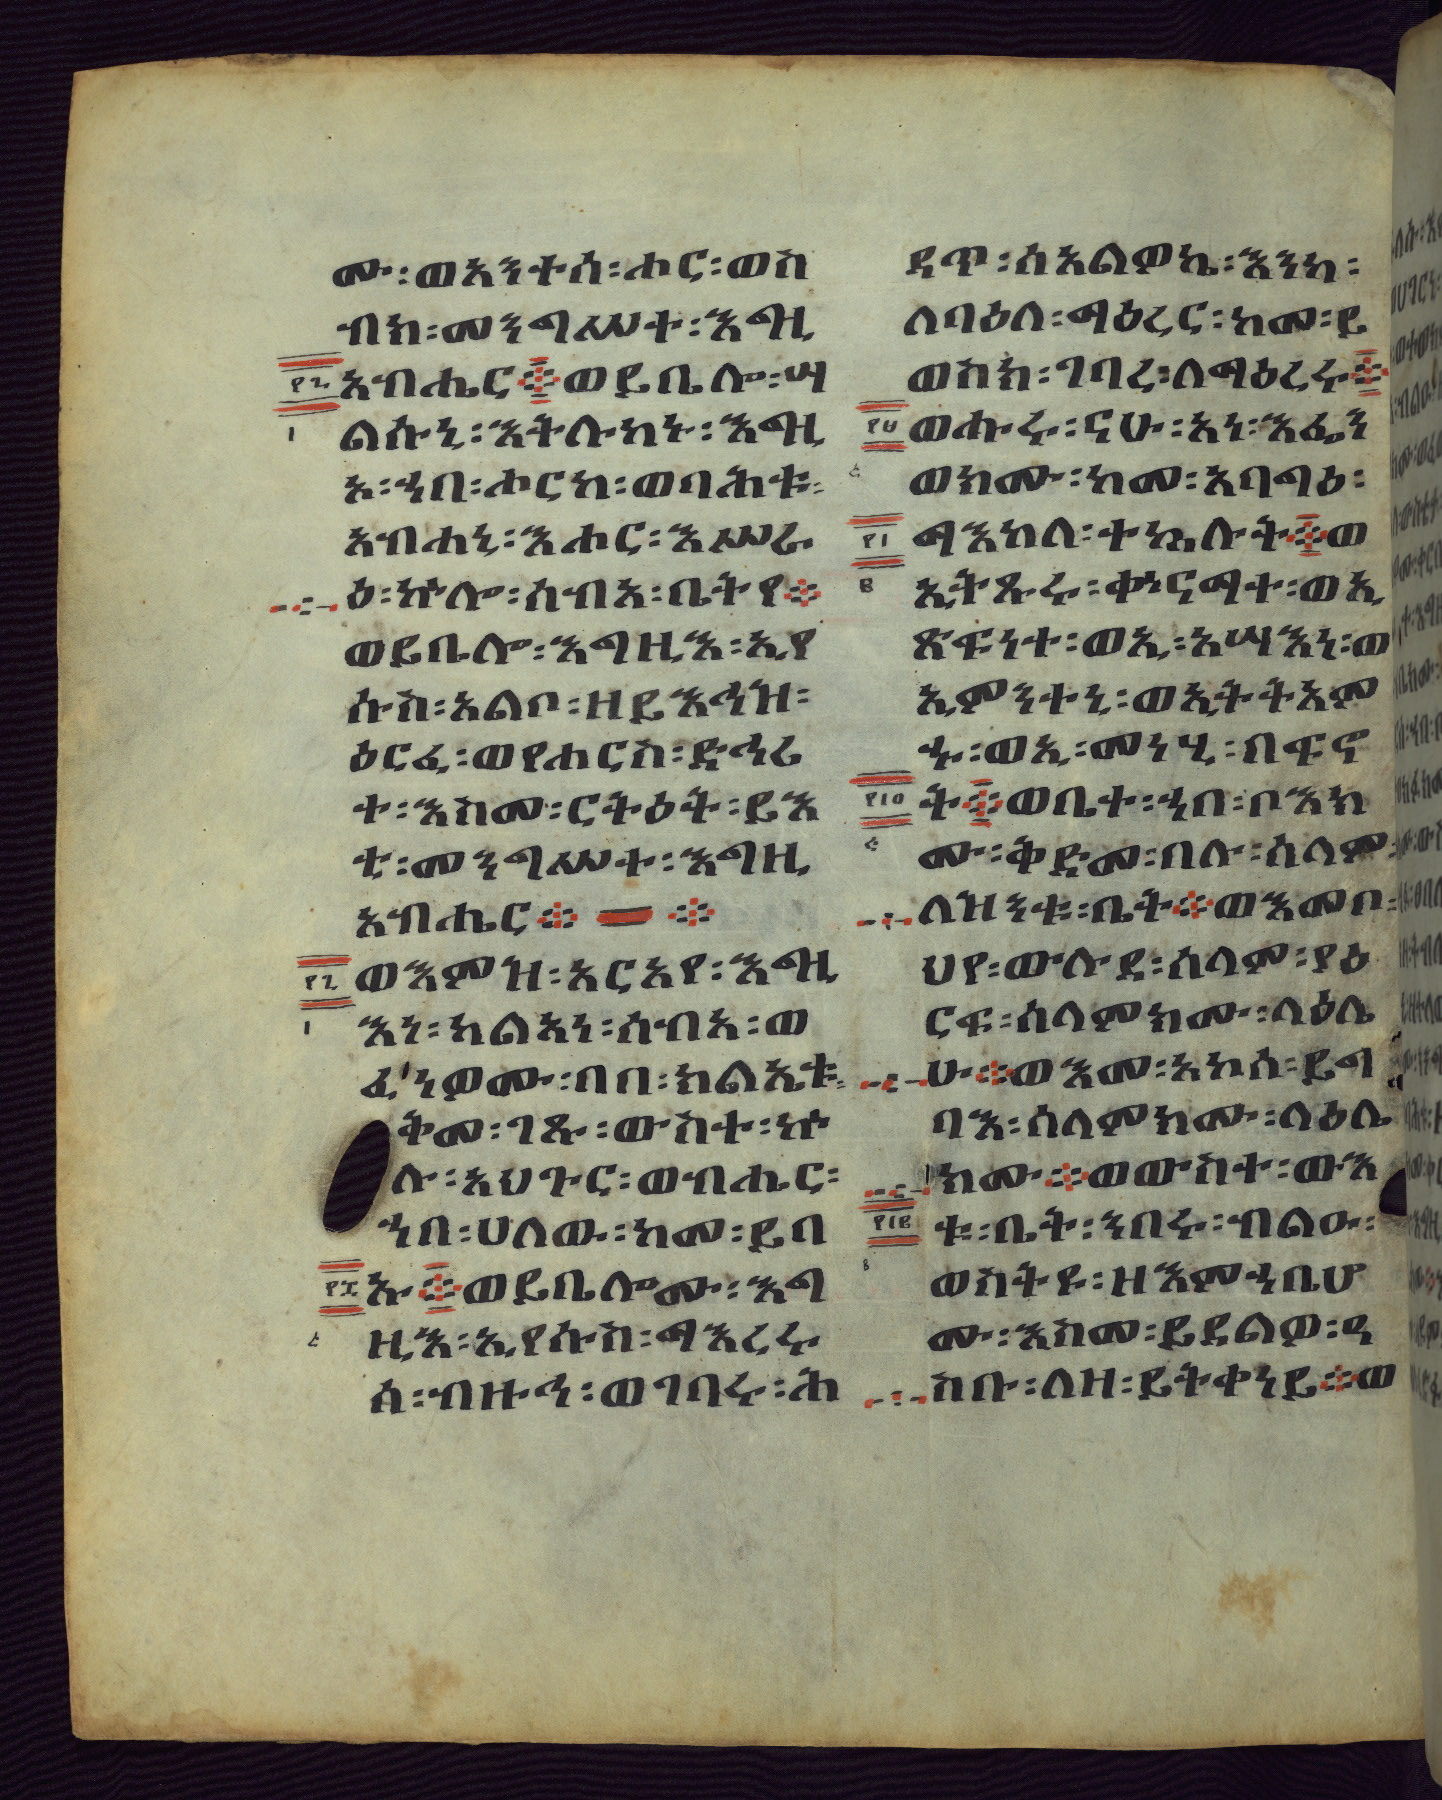 ሙ፡ወአንተሰ፡ሖር፡ወስ
ብክ፡መንግሥተ፡እግዚ
አብሔር፨ወይቤሎ፡ሣ
ልሱኒ፡እትሉከኑ፡እግዚ
አ፡ኀበ፡ሖርከ፡ወባሕቱ፡
አብሐኒ፡እሖር፡እሥራ
ዕ፡ኵሎ፡ሰብአ፡ቤትየ፨
ወይቤሎ፡እግዚእ፡ኢየ
ሱስ፡አልቦ፡ዘይእኅዝ፡
ዕርፈ፡ወየሐርስ፡ድኅሬ
ተ፡እስመ፡ርትዕት፡ይእ
ቲ፡መንግሥተ፡እግዚ
አብሔር፨ ፨
ወእምዝ፡አርአየ፡እግዚ
እነ፡ካልአነ፡ሰብአ፡ወ
ፈነወሙ፡በበ፡ክልኤቱ፡
ቅመ፡ገጹ፡ውስተ፡ኵ
ሉ፡አህጉር፡ወብሔር፡
ኀበ፡ሀለው፡ከመ፡ይባ
እ፨ወይቤሎሙ፡እግ
ዚእ፡ኢየሱስ፡ማእረሩ
ሰ፡ብዙኅ፡ወገባሩ፡ሕ
ዳጥ፡ሰአልዎኬ፡እንከ፡
ለባዕለ፡ማዕረር፡ከመ፡ይ
ወስክ፡ገባረ፡ለማዕረሩ፨
ወሑሩ፡ናሁ፡አነ፡እፌን
ወክሙ፡ከመ፡አባግዕ፡
ማእከለ፡ተኩላት፨ወ
ኢትጹሩ፡ቍናማተ፡ወኢ
ጽፍነተ፡ወኢ፡አሣእነ፡ወ
ኢምንተኒ፡ወኢትትአም
ኁ፡ወኢ፡መነሂ፡በፍኖ
ት፨ወቤተ፡ኀበ፡ቦእክ
ሙ፡ቅድመ፡በሉ፡ሰላም፡
ለዝንቱ፡ቤት፨ወእመቦ፡
ህየ፡ውሉደ፡ሰላም፡ያዕ
ርፍ፡ሰላምክሙ፡ላዕሌ
ሁ፨ወእመ፡አኮሰ፡ይግ
ባእ፡ሰላምክሙ፡ላዕሌ
ክሙ፨ወውስተ፡ውእ
ቱ፡ቤት፡ንበሩ፡ብልዑ፡
ወስትዩ፡ዘእምኀቤሆ
ሙ፡እስመ፡ይደልዎ፡ዓ
ስቡ፡ለዘ፡ይትቀነይ፨ወ